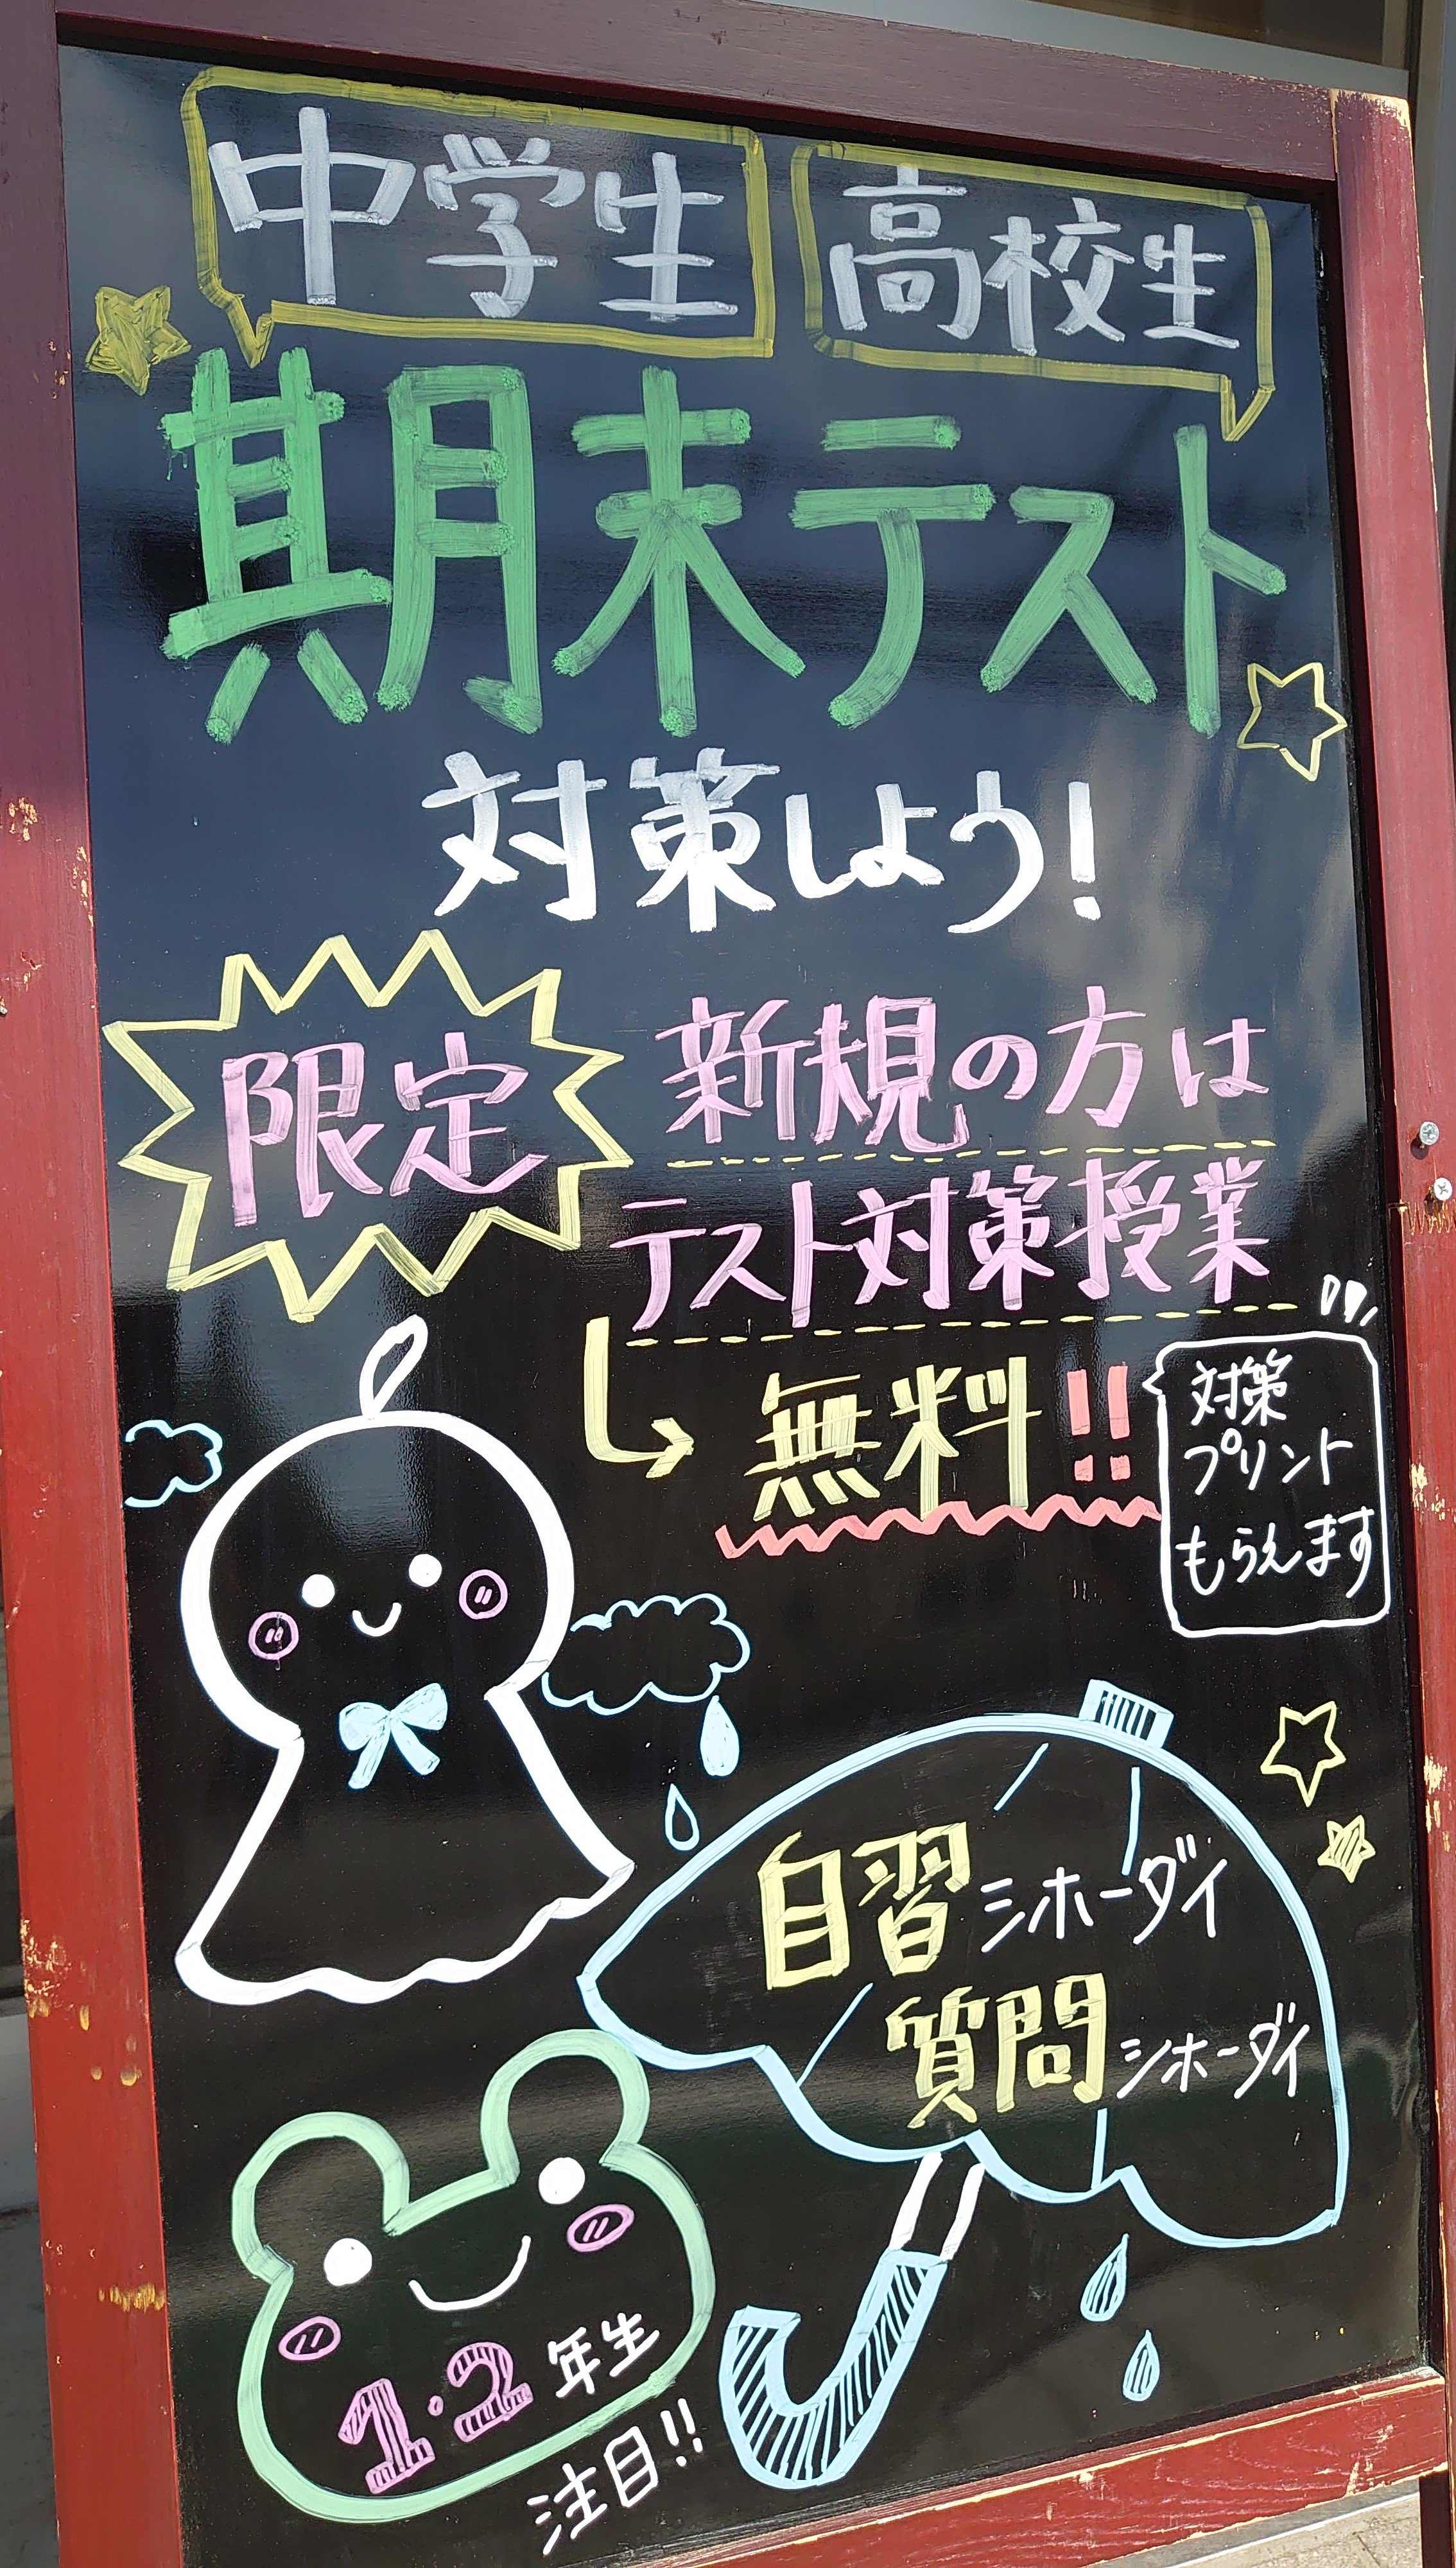 中学生 高校生
期末テスト
対策しよう!
限定
新規の方は
テスト対策授業
無料!!
対策
プリント
もらえます
自習シホーダイ
質問シホーダイ
1・2年生
注目!!